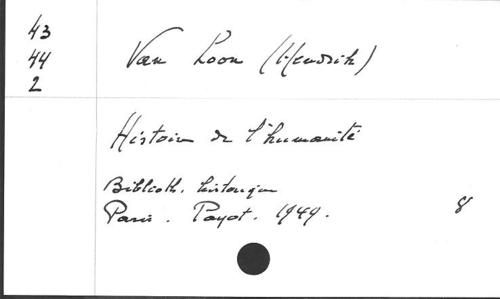 43
44
2
Van Loon (Hendrik)
Histoire de l'humanité
Biblioth. historique
Paris. Payot. 1949. 8